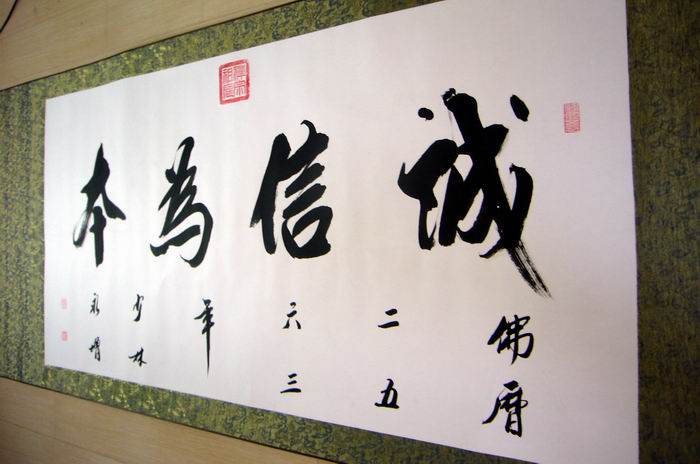 誠信為本
佛曆
二五
六三
年
少林